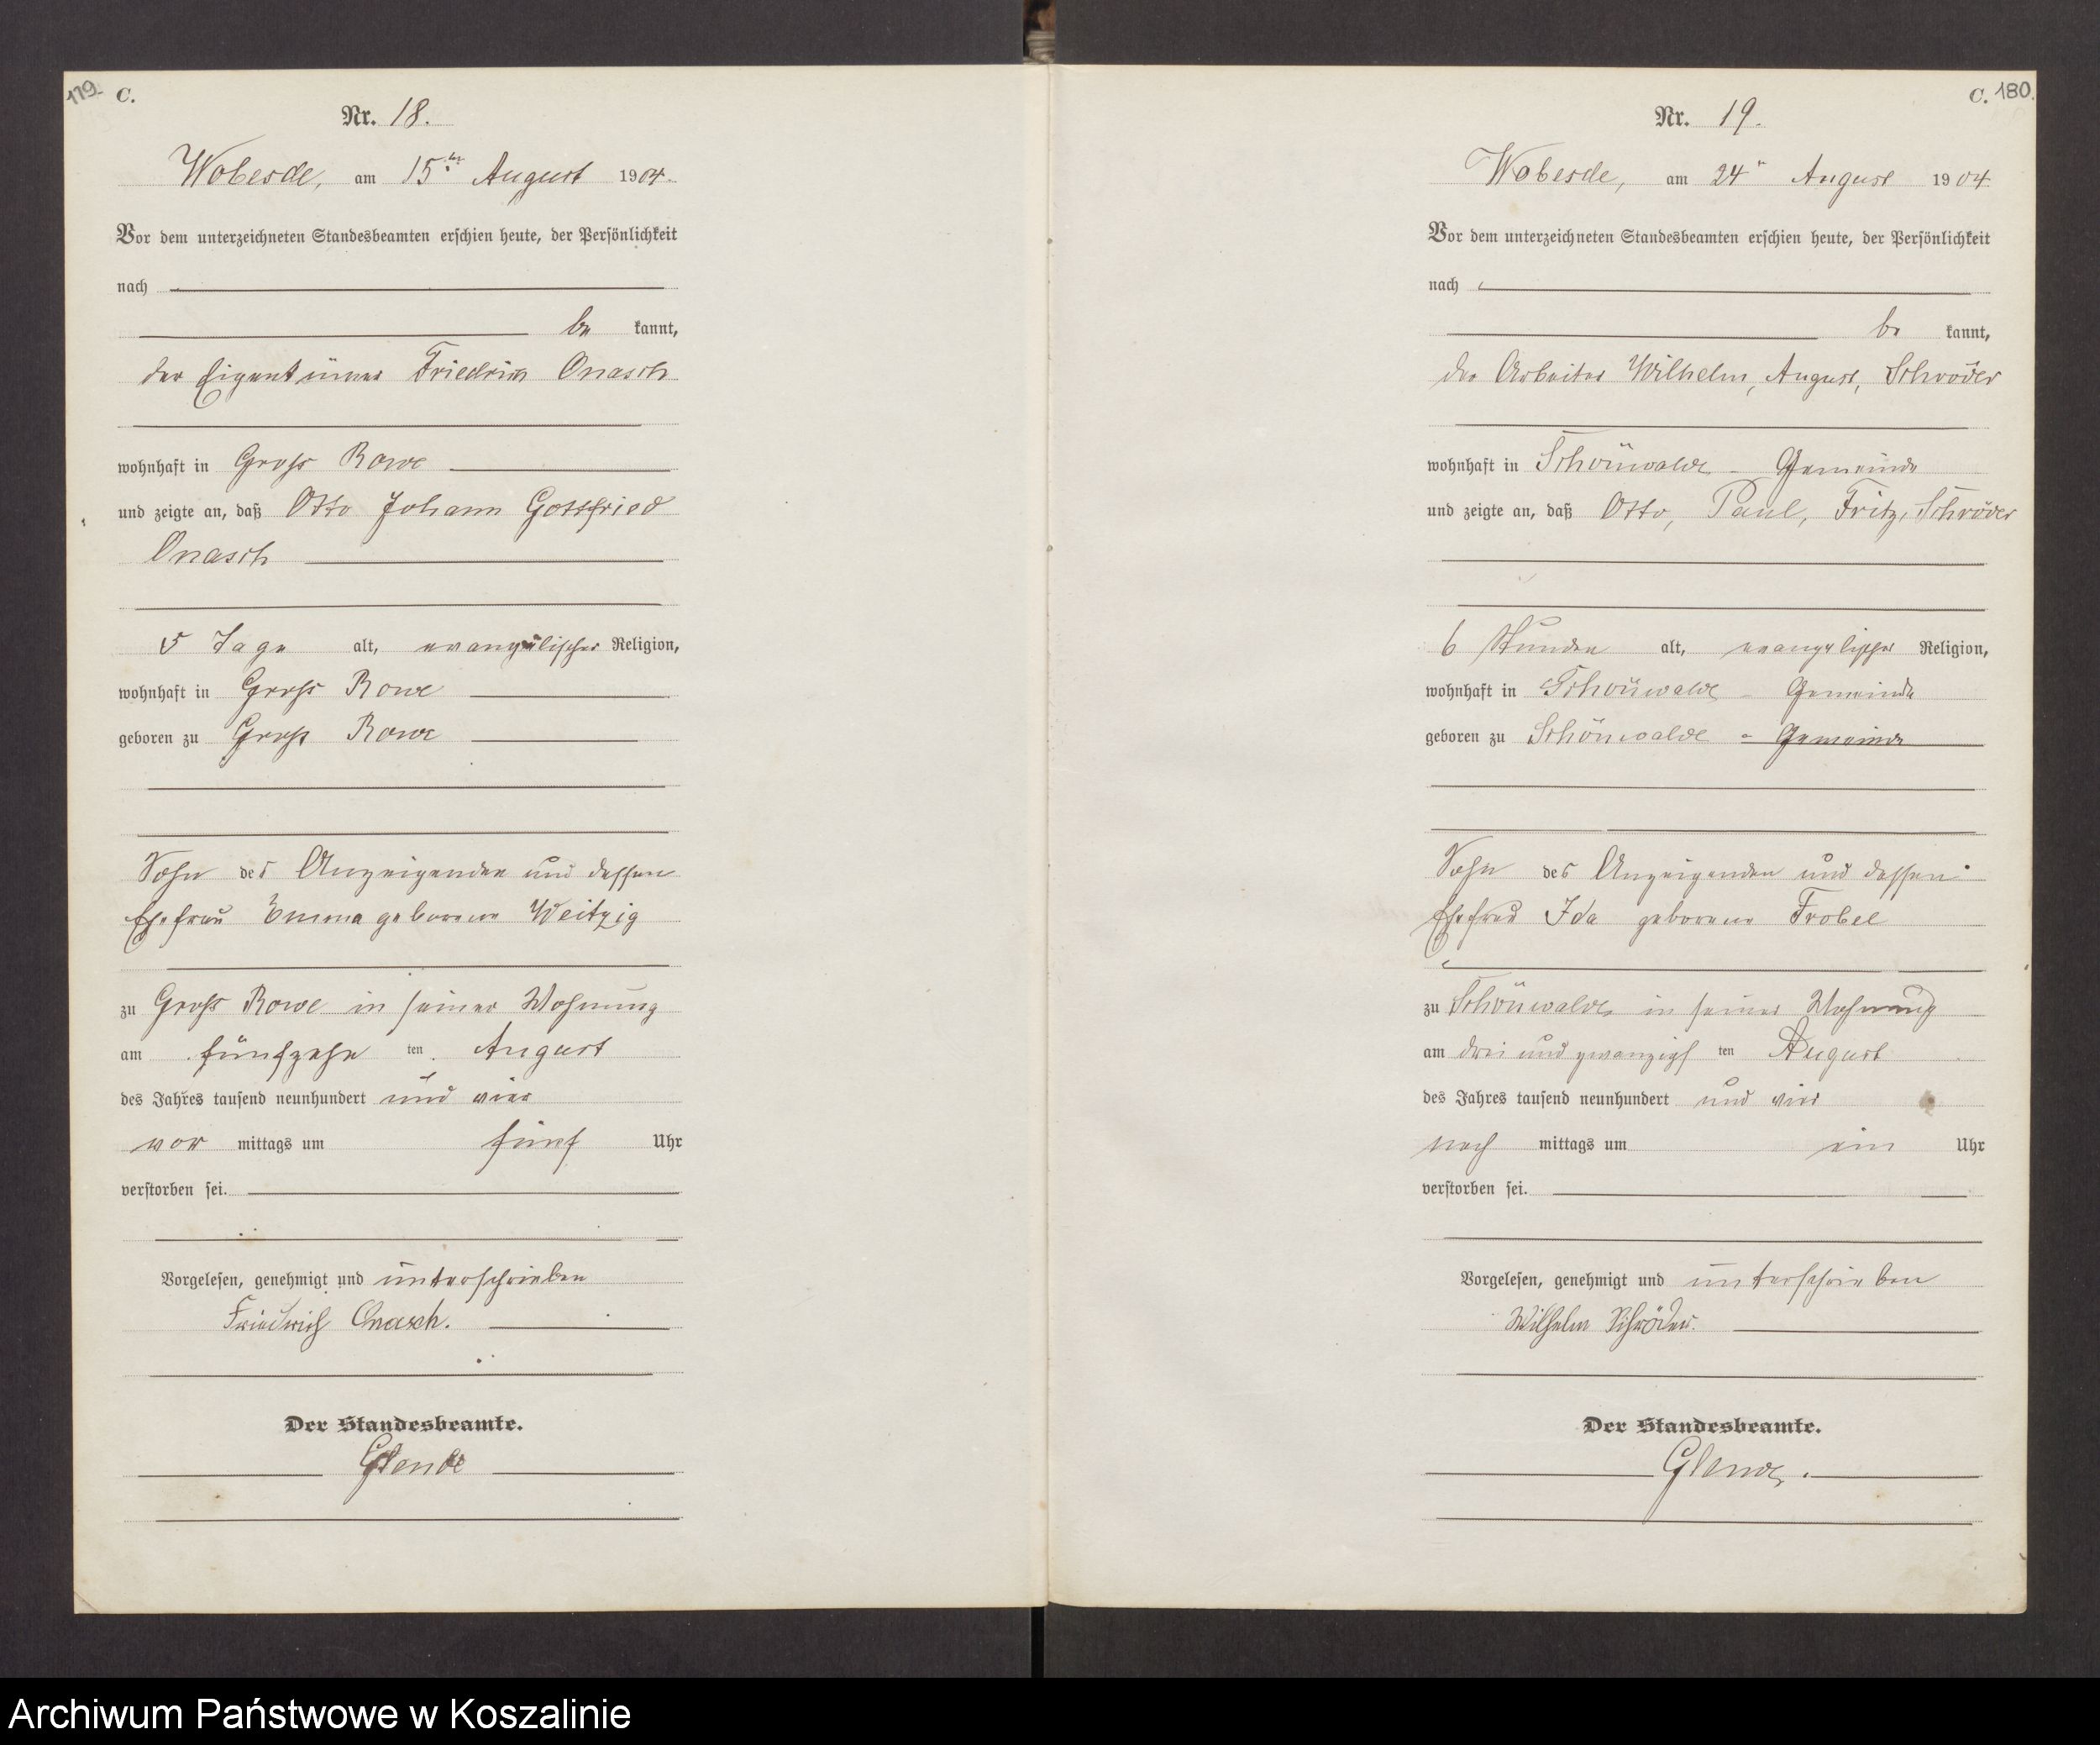 179.
C.
Nr. 18.
Wobesde, am 15ten August 1904.
Vor dem unterzeichneten Standesbeamten erschien heute, der Persönlichkeit
nach
be kannt,
der Eigentümer Friedrich Onasch
wohnhaft in Gross Rowe
und zeigte an, daß Otto Johann Gottfried
Onasch
5 Tage alt, evangelischer Religion,
wohnhaft in Gross Rowe
geboren zu Gross Rowe
Sohn des Anzeigenden und dessen
Ehefrau Emma geborene Weitzig
zu Gross Rowe in seiner Wohnung
am fünfzehn ten August
des Jahres tausend neunhundert und vier
vor mittags um fünf Uhr
verstorben sei.
Vorgelesen, genehmigt und unterschrieben
Friedrich Onasch.
Der Standesbeamte.
Glende
C. 180.
Nr. 19.
Wobesde, am 24n August 1904
Vor dem unterzeichneten Standesbeamten erschien heute, der Persönlichkeit
nach
be kannt,
der Arbeiter Wilhelm, August, Schröder
wohnhaft in Schönwalde - Gemeinde
und zeigte an, daß Otto, Paul, Fritz, Schröder
6 Stunden alt, evangelischer Religion,
wohnhaft in Schönwalde - Gemeinde
geboren zu Schönwalde - Gemeinde
Sohn des Anzeigenden und dessen
Ehefrau Ida geborene Frobel
zu Schönwalde in seiner Wohnung
am drei und zwanzigs ten August
des Jahres tausend neunhundert und vier
nach mittags um ein Uhr
verstorben sei.
Vorgelesen, genehmigt und unterschrieben
Wilhelm Schröder.
Der Standesbeamte.
Glende.
Archiwum Państwowe w Koszalinie